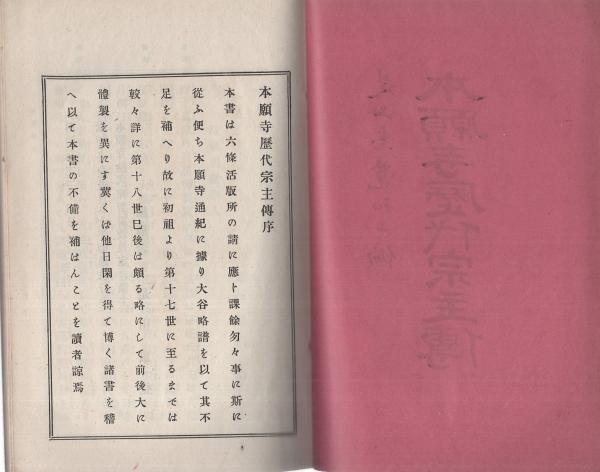 本願寺歷代宗主傳
本願寺歷代宗主傳序
本書は六條活版所の請に應ト課餘匆々事に斯に
從ふ便ち本願寺通紀に據り大谷略譜を以て其不
足を補へり故に初祖より第十七世に至るまでは
較々詳に第十八世已後は頗る略にして前後大に
體製を異にす冀くは他日閑を得て博く諸書を稽
へ以て本書の不備を補はんことを讀者諒焉